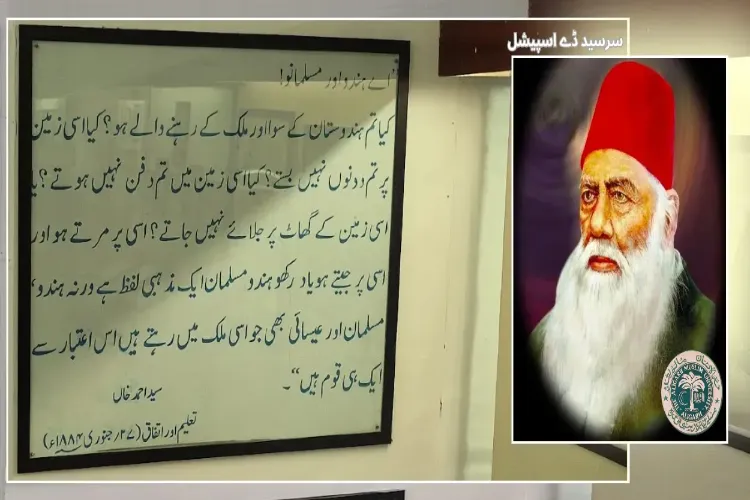 سرسید ڈے اسپیشل
"اے ہندو اور مسلمانو!
کیا تم ہندوستان کے سوا اور ملک کے رہنے والے ہو؟ کیا اسی زمین
پر تم دونوں نہیں بستے؟ کیا اسی زمین میں تم دفن نہیں ہوتے؟ یا
اسی زمین کے گھاٹ پر جلائے نہیں جاتے؟ اسی پر مرتے ہو اور
اسی پر جیتے ہو یاد رکھو ہندو مسلمان ایک مذہبی لفظ ہے ورنہ ہندو،
مسلمان اور عیسائی بھی جو اسی ملک میں رہتے ہیں اس اعتبار سے
ایک ہی قوم ہیں"۔
سید احمد خاں
تعلیم اور اتفاق (۲۷؍ جنوری ۱۸۸۴ء)